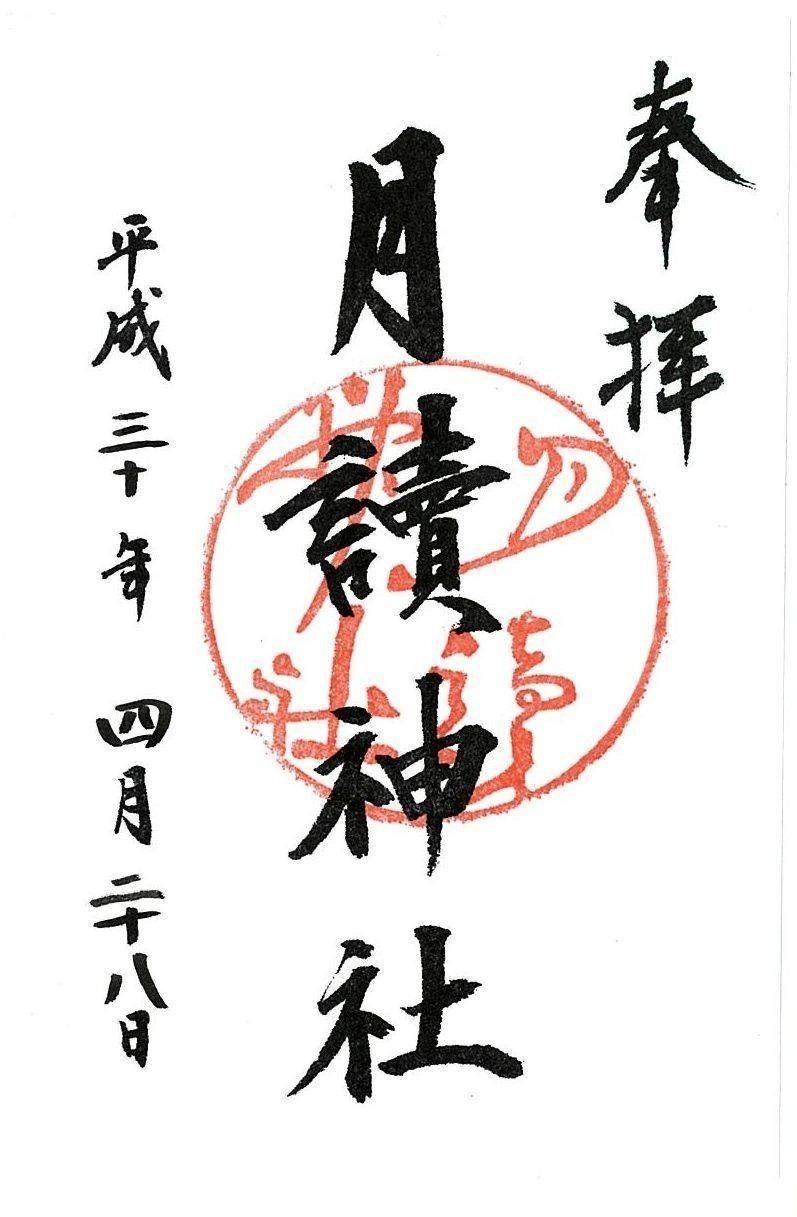 奉拝
月讀神社
平成三十年 四月二十八日